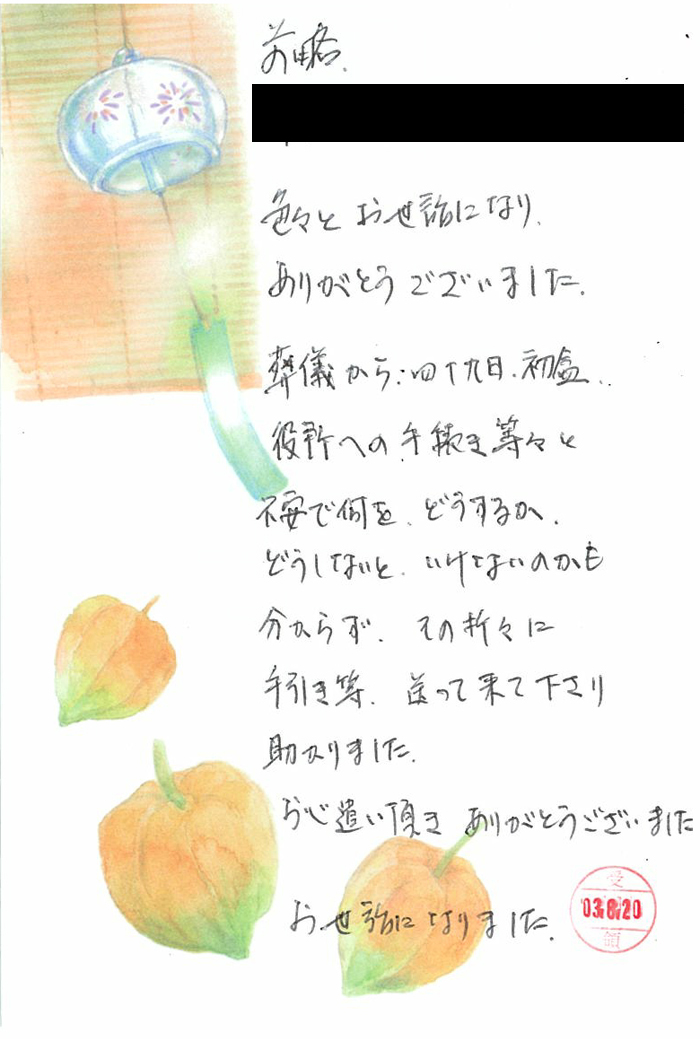 前略.
色々と お世話になり.
ありがとう ございました.
葬儀から.四十九日.初盆..
役所への 手続き 等々と
不安で何を、どうするか、
どうしないと、いけないのかも
分からず、その折々に
手引き等、送って来て下さり
助かりました.
お心遣い頂き ありがとうございました
お世話になりました.
受
03.8.20
領